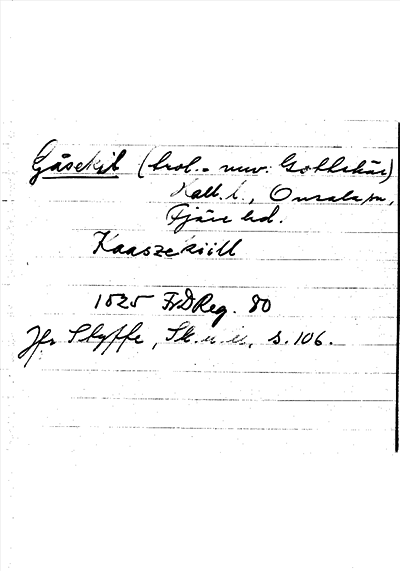 Gåsekil (trol. = nuv. Gottskär)
Hall. l., Onsala sn,
Fjäre hd.
Kaaszekiill
1525 FrDReg. 80
Jfr Styffe, Sk. u. u., s. 106.